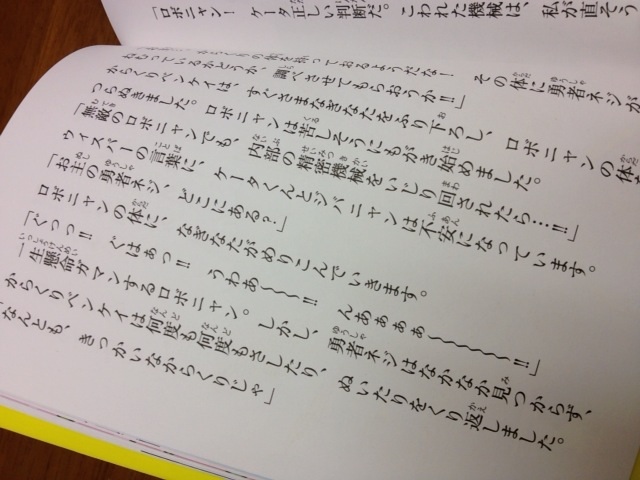 「ロボニャン！　ケータ正しい判断だ。こわれた機械は、私が直そう
その体に勇者ネジが
っているかどうか、調べさせてもらおうか!!」
からくりベンケイは、すべさまなぎなたをふり下ろし、ロボニャンの体
つらぬきました。ロボニャンは苦しそうにもがき始めました。
「無敵のロボニャンでも、内部の精密機械をいじり回されたら…!!」
ウィスパーの言葉に、ケータくんとジバニャンは不安になっています。
「お主の勇者ネジ、どこにある？」
ロボニャンの体に、なぎなたがめりこんでいきます。
「ぐっっ!!　ぐはぁっ!!　うわあ〜〜〜!!　んああああ〜〜〜〜〜!!」
一生懸命ガマンするロボニャン。しかし、勇者ネジはなかなか見つからず、
からくりベンケイは何度も何度もさしたり、ぬいたりをくり返しました。
「なんとも、きっかいなからくりじゃ」